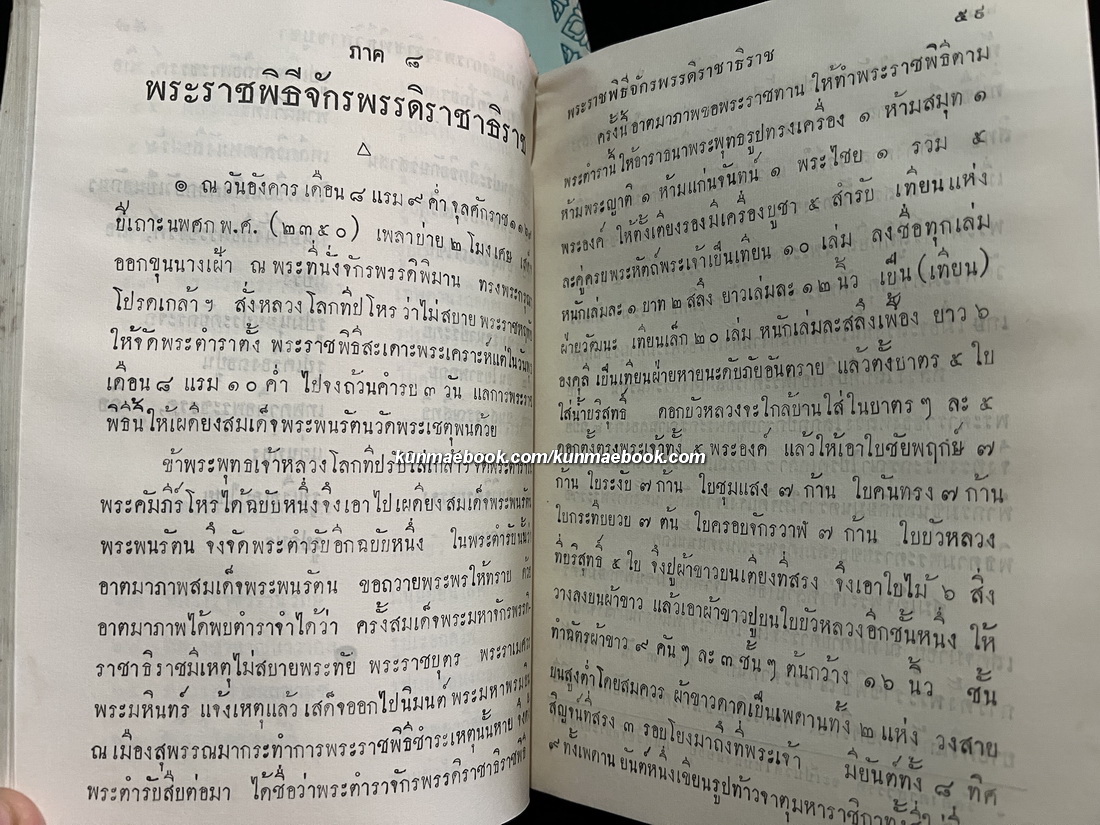 ภาค ๘
พระราชพิธีจักรพรรดิราชาธิราช
๑ ณ วันอังคาร เดือน ๘ แรม ๙ ค่ำ จุลศักราช
ยี่เถาะนพศก พ.ศ. (๒๓๕๐) เพลาบ่าย ๒ โมงเศษ
ออกขุนนางเฝ้า ณ พระที่นั่งจักรพรรดิพิมาน ทรงพระกรุณา
โปรดเกล้าฯ สั่งหลวงโลกทีปโหร ว่าไม่สบาย
ให้จัดพระตำราตั้ง พระราชพิธีสะเดาะพระเคราะห์แต่ในวัน
เดือน ๘ แรม ๑๐ ค่ำ ไปจงถ้วนคำรบ ๓ วัน แลการพระราช
พิธีนี้ให้เผดียงสมเด็จพระพนรัตนวัดพระเชตุพนด้วย
ข้าพระพุทธเจ้าหลวงโลกทีปรับใส่เกล้าฯ จัดพระตำรา
พระคัมภีร์โหรได้ฉบับหนึ่งจึงเอาไปเผดียงสมเด็จพระพนรัตน
พระพนรัตน จึงจัดพระตำรับอีกฉบับหนึ่ง ในพระตำรับนั้น
อาตมาภาพสมเด็จพระพนรัตน ขอถวายพระพรให้ทราย ด้วย
อาตมาภาพได้พบตำราจำได้ว่า ครั้งสมเด็จพระมหาจักรพรรดิ
ราชาธิราชมีเหตุไม่สบายพระทัย พระราชบุตร พระราเมศวร
พระมหินทร์ แจ้งเหตุแล้ว เสด็จออกไปนิมนต์ พระมหาพรหม
ณ เมืองสุพรรณมากระทำการพระราชพิธีชำระเหตุนั้นหาย จึง
พระตำรับสืบต่อมา ได้ชื่อว่าพระตำราจักรพรรดิราชาธิราชพิธี
๕๙
พระราชพิธีจักรพรรดิราชาธิราช
ครั้งนี้ อาตมาภาพขอพระราชทาน ให้ทำพระราชพิธีตาม
พระตำรานี้ ให้อาราธนาพระพุทธรูปทรงเครื่อง ๑ ห้ามสมุท ๑
ห้ามพระญาติ ๑ ห้ามแก่นจันทน์ ๑ พระไชย ๑ รวม ๕
พระองค์ ให้ตั้งเตียงรองมีเครื่องบูชา ๕ สำรับ เทียนแห่ง
ละคู่ครบพระหัตถ์พระเจ้าเป็นเทียน ๑๐ เล่ม ลงชื่อทุกเล่ม
หนักเล่มละ ๑ บาท ๒ สลึง ยาวเล่มละ ๑๒ นิ้ว เป็น (เทียน)
ฝ่ายวัฒนะ เทียนเล็ก ๒๐ เล่ม หนักเล่มละสลึงเฟื้อง ยาว ๖
องคุลี เป็นเทียนฝ่ายหายนะดับภัยอันตราย แล้วตั้งบาตร ๕ ใบ
ใส่น้ำบริสุทธิ์ ดอกบัวหลวงจะใกล้บานใส่ในบาตร ๆ ละ ๕
ดอกตั้งตรงพระเจ้าทั้ง ๕ พระองค์ แล้วให้เอาใบชัยพฤกษ์ ๗
ก้าน ใบระงับ ๗ ก้าน ใบชุมแสง ๗ ก้าน ใบคันทรง ๗ ก้าน
ใบกระทืบยวบ ๗ ต้น ใบครอบจักรวาฬ ๗ ก้าน ใบบัวหลวง
ที่บริสุทธิ์ ๕ ใบ จึงปูผ้าขาวบนเตียงที่สรง จึงเอาใบไม้ ๖ สิ่ง
วางลงบนผ้าขาว แล้วเอาผ้าขาวปูบนใบบัวหลวงอีกชั้นหนึ่ง ให้
ทำฉัตรผ้าขาว ๙ คัน ๆ ละ ๓ ชั้น ๆ ต้นกว้าง ๑๖ นิ้ว ชั้น
บนสูงต่ำโดยสมควร ผ้าขาวดาดเป็นเพดานทั้ง ๒ แห่ง วงสาย
สิญจน์ที่สรง ๓ รอบโยงมาถึงที่พระเจ้า มียันต์ทั้ง ๘ ทิศ
๙ ทั้งเพดาน ยันต์หนึ่งเขียนรูปท้าวจาตุมหาราชิกา
kunmaebook.com/kunmaebook.com